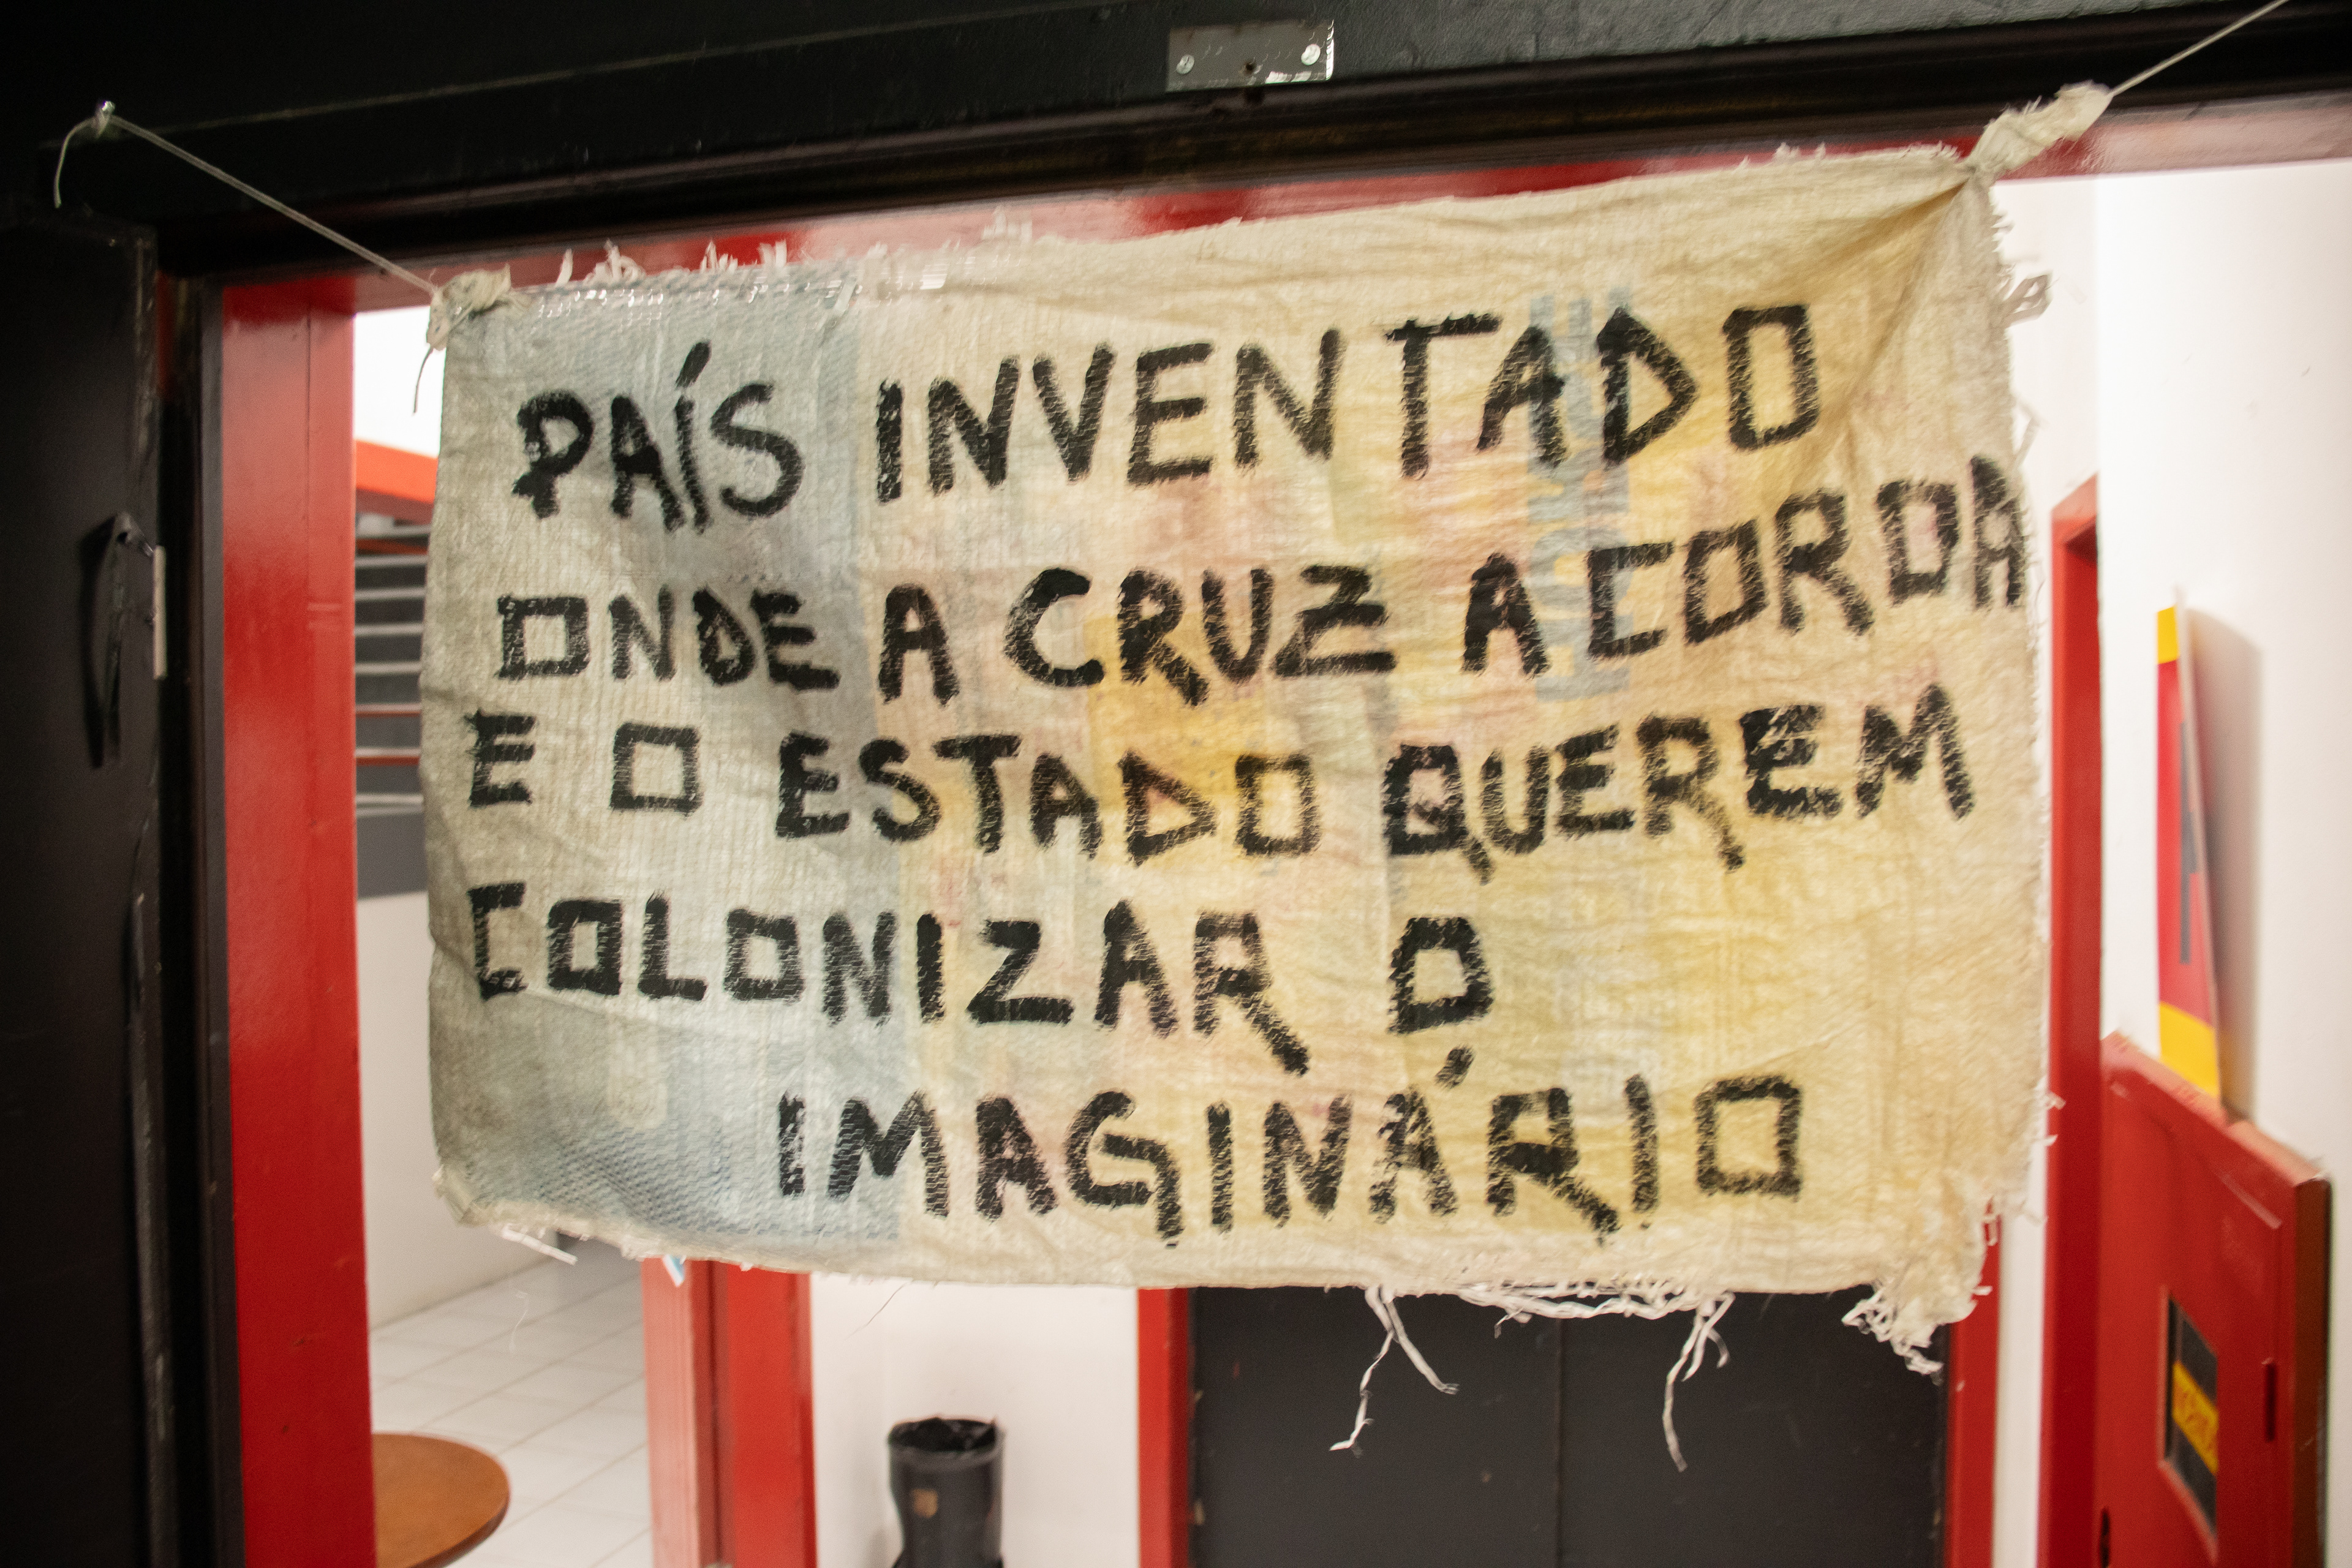 PAÍS INVENTADO
ONDE A CRUZ A CORDA
E O ESTADO QUEREM
COLONIZAR O
IMAGINÁRIO